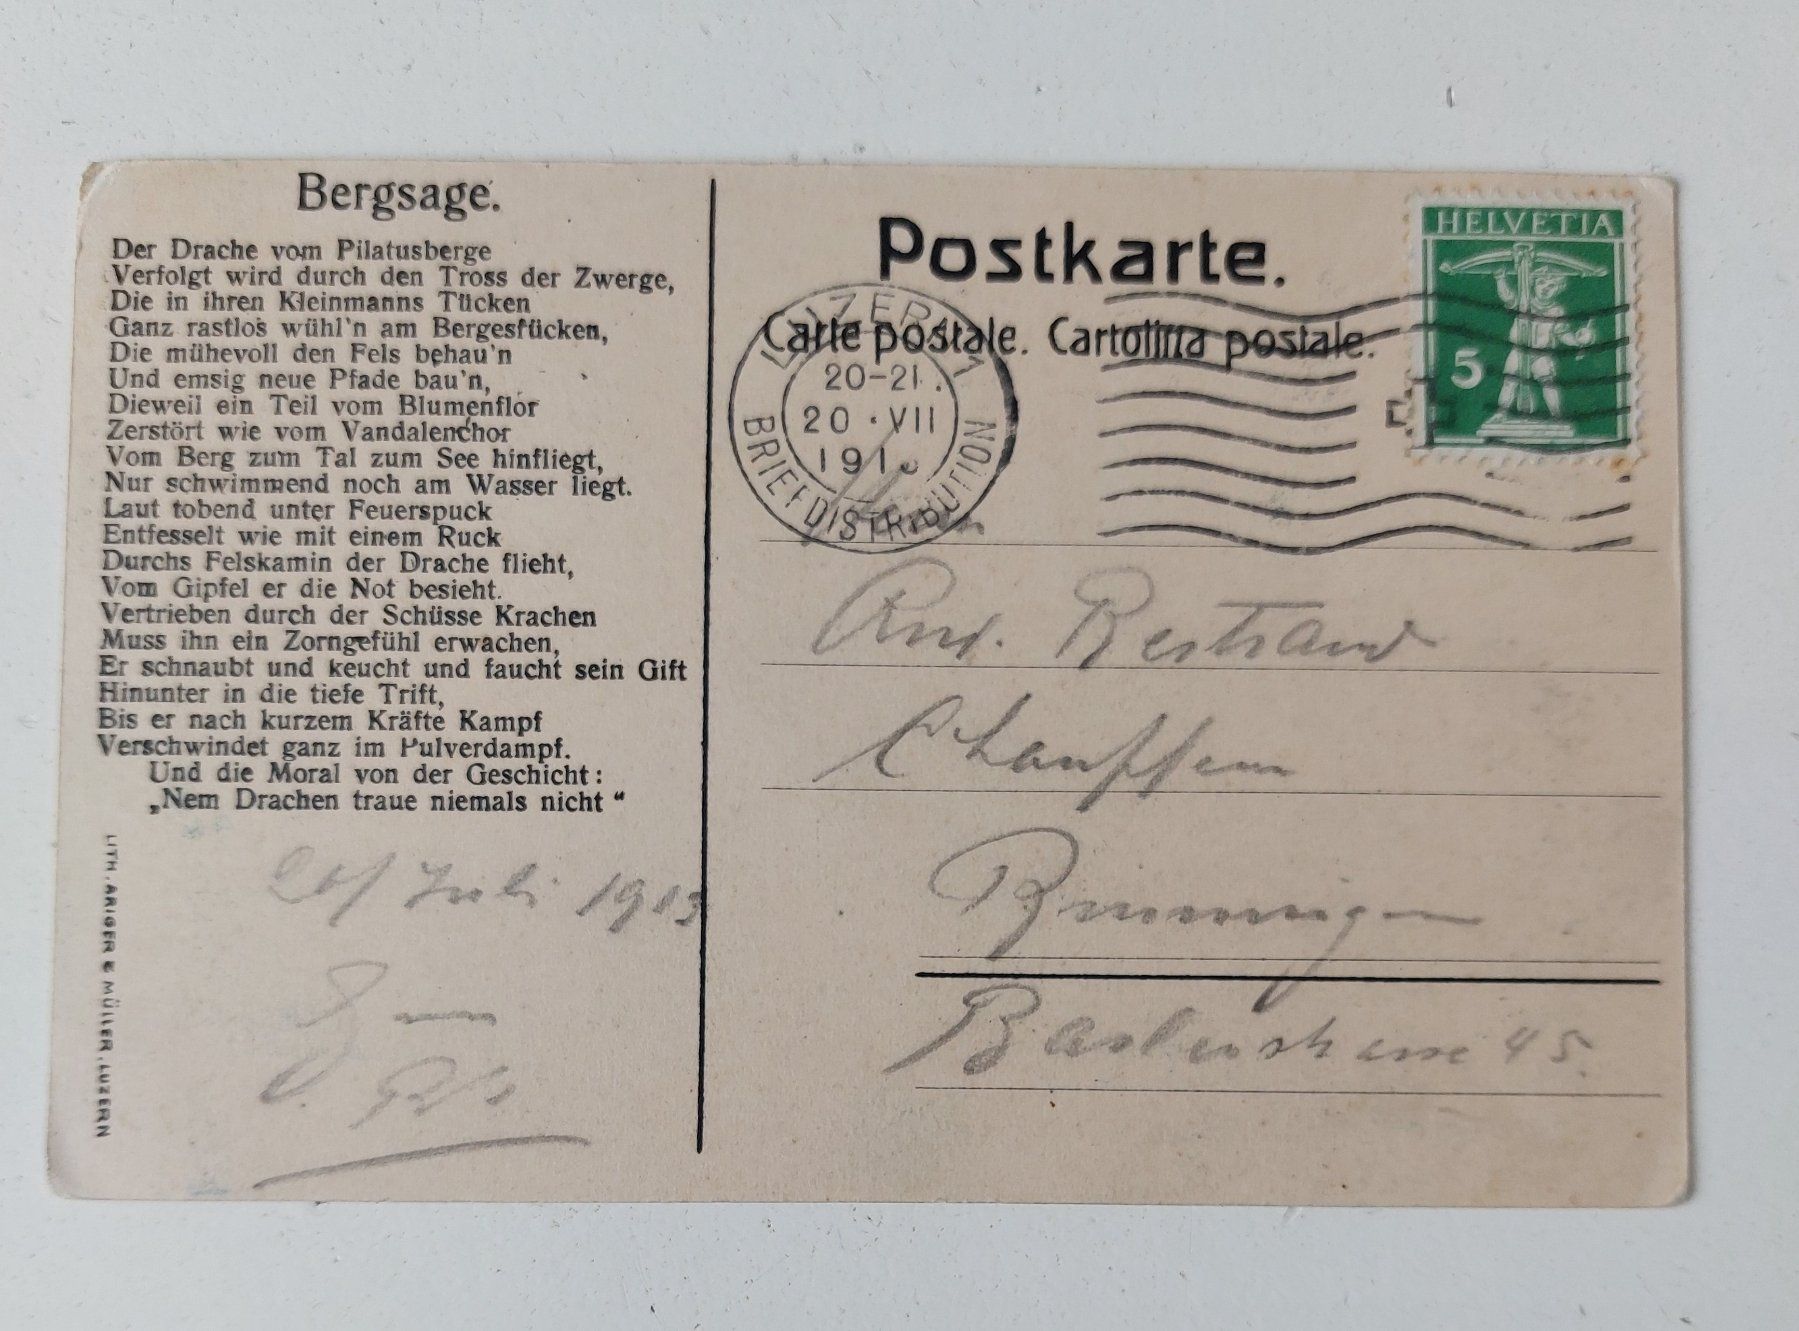 Bergsage.
Der Drache vom Pilatusberge
Verfolgt wird durch den Tross der Zwerge,
Die in ihren Kleinmanns Tücken
Ganz rastlos wühl'n am Bergesrücken,
Die mühevoll den Fels behau'n
Und emsig neue Pfade bau'n,
Dieweil ein Teil vom Blumenflor
Zerstört wie vom Vandalenchor
Vom Berg zum Tal zum See hinfliegt,
Nur schwimmend noch am Wasser liegt.
Laut tobend unter Feuerspuck
Entfesselt wie mit einem Ruck
Durchs Felskamin der Drache flieht,
Vom Gipfel er die Not besieht.
Vertrieben durch der Schüsse Krachen
Muss ihn ein Zorngefühl erwachen,
Er schnaubt und keucht und faucht sein Gift
Hinunter in die tiefe Trift,
Bis er nach kurzem Kräfte Kampf
Verschwindet ganz im Pulverdampf.
Und die Moral von der Geschicht:
„Nem Drachen traue niemals nicht“
LITH. ARIGER & MÜLLER. LUZERN
Juli 1913
Postkarte.
Carte postale. Cartolina postale.
HELVETIA
5
LUZERN 1
20-21.
20.VII
191
BRIEFDISTRIBUTION
Bertrand
Chauffeur
Binningen
Baslerstrasse 45.